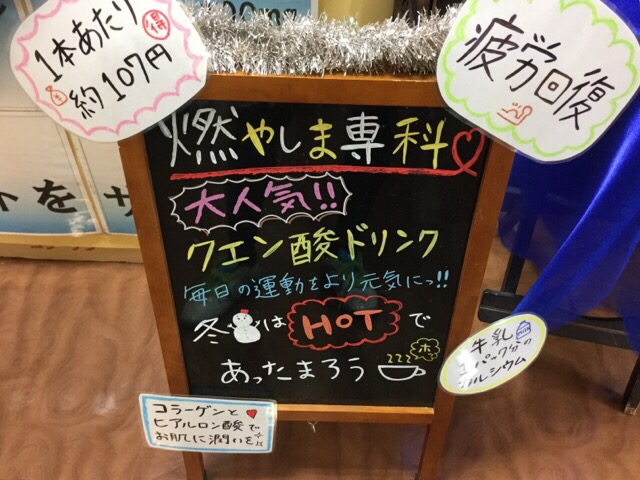 1本あたり
得
約107円
疲労回復
燃やしま専科
大人気!!
クエン酸ドリンク
毎日の運動をより元気にっ!!
冬はHOTで
あったまろう
牛乳
パック分の
カルシウム
コラーゲンと
ヒアルロン酸で
お肌に潤いを